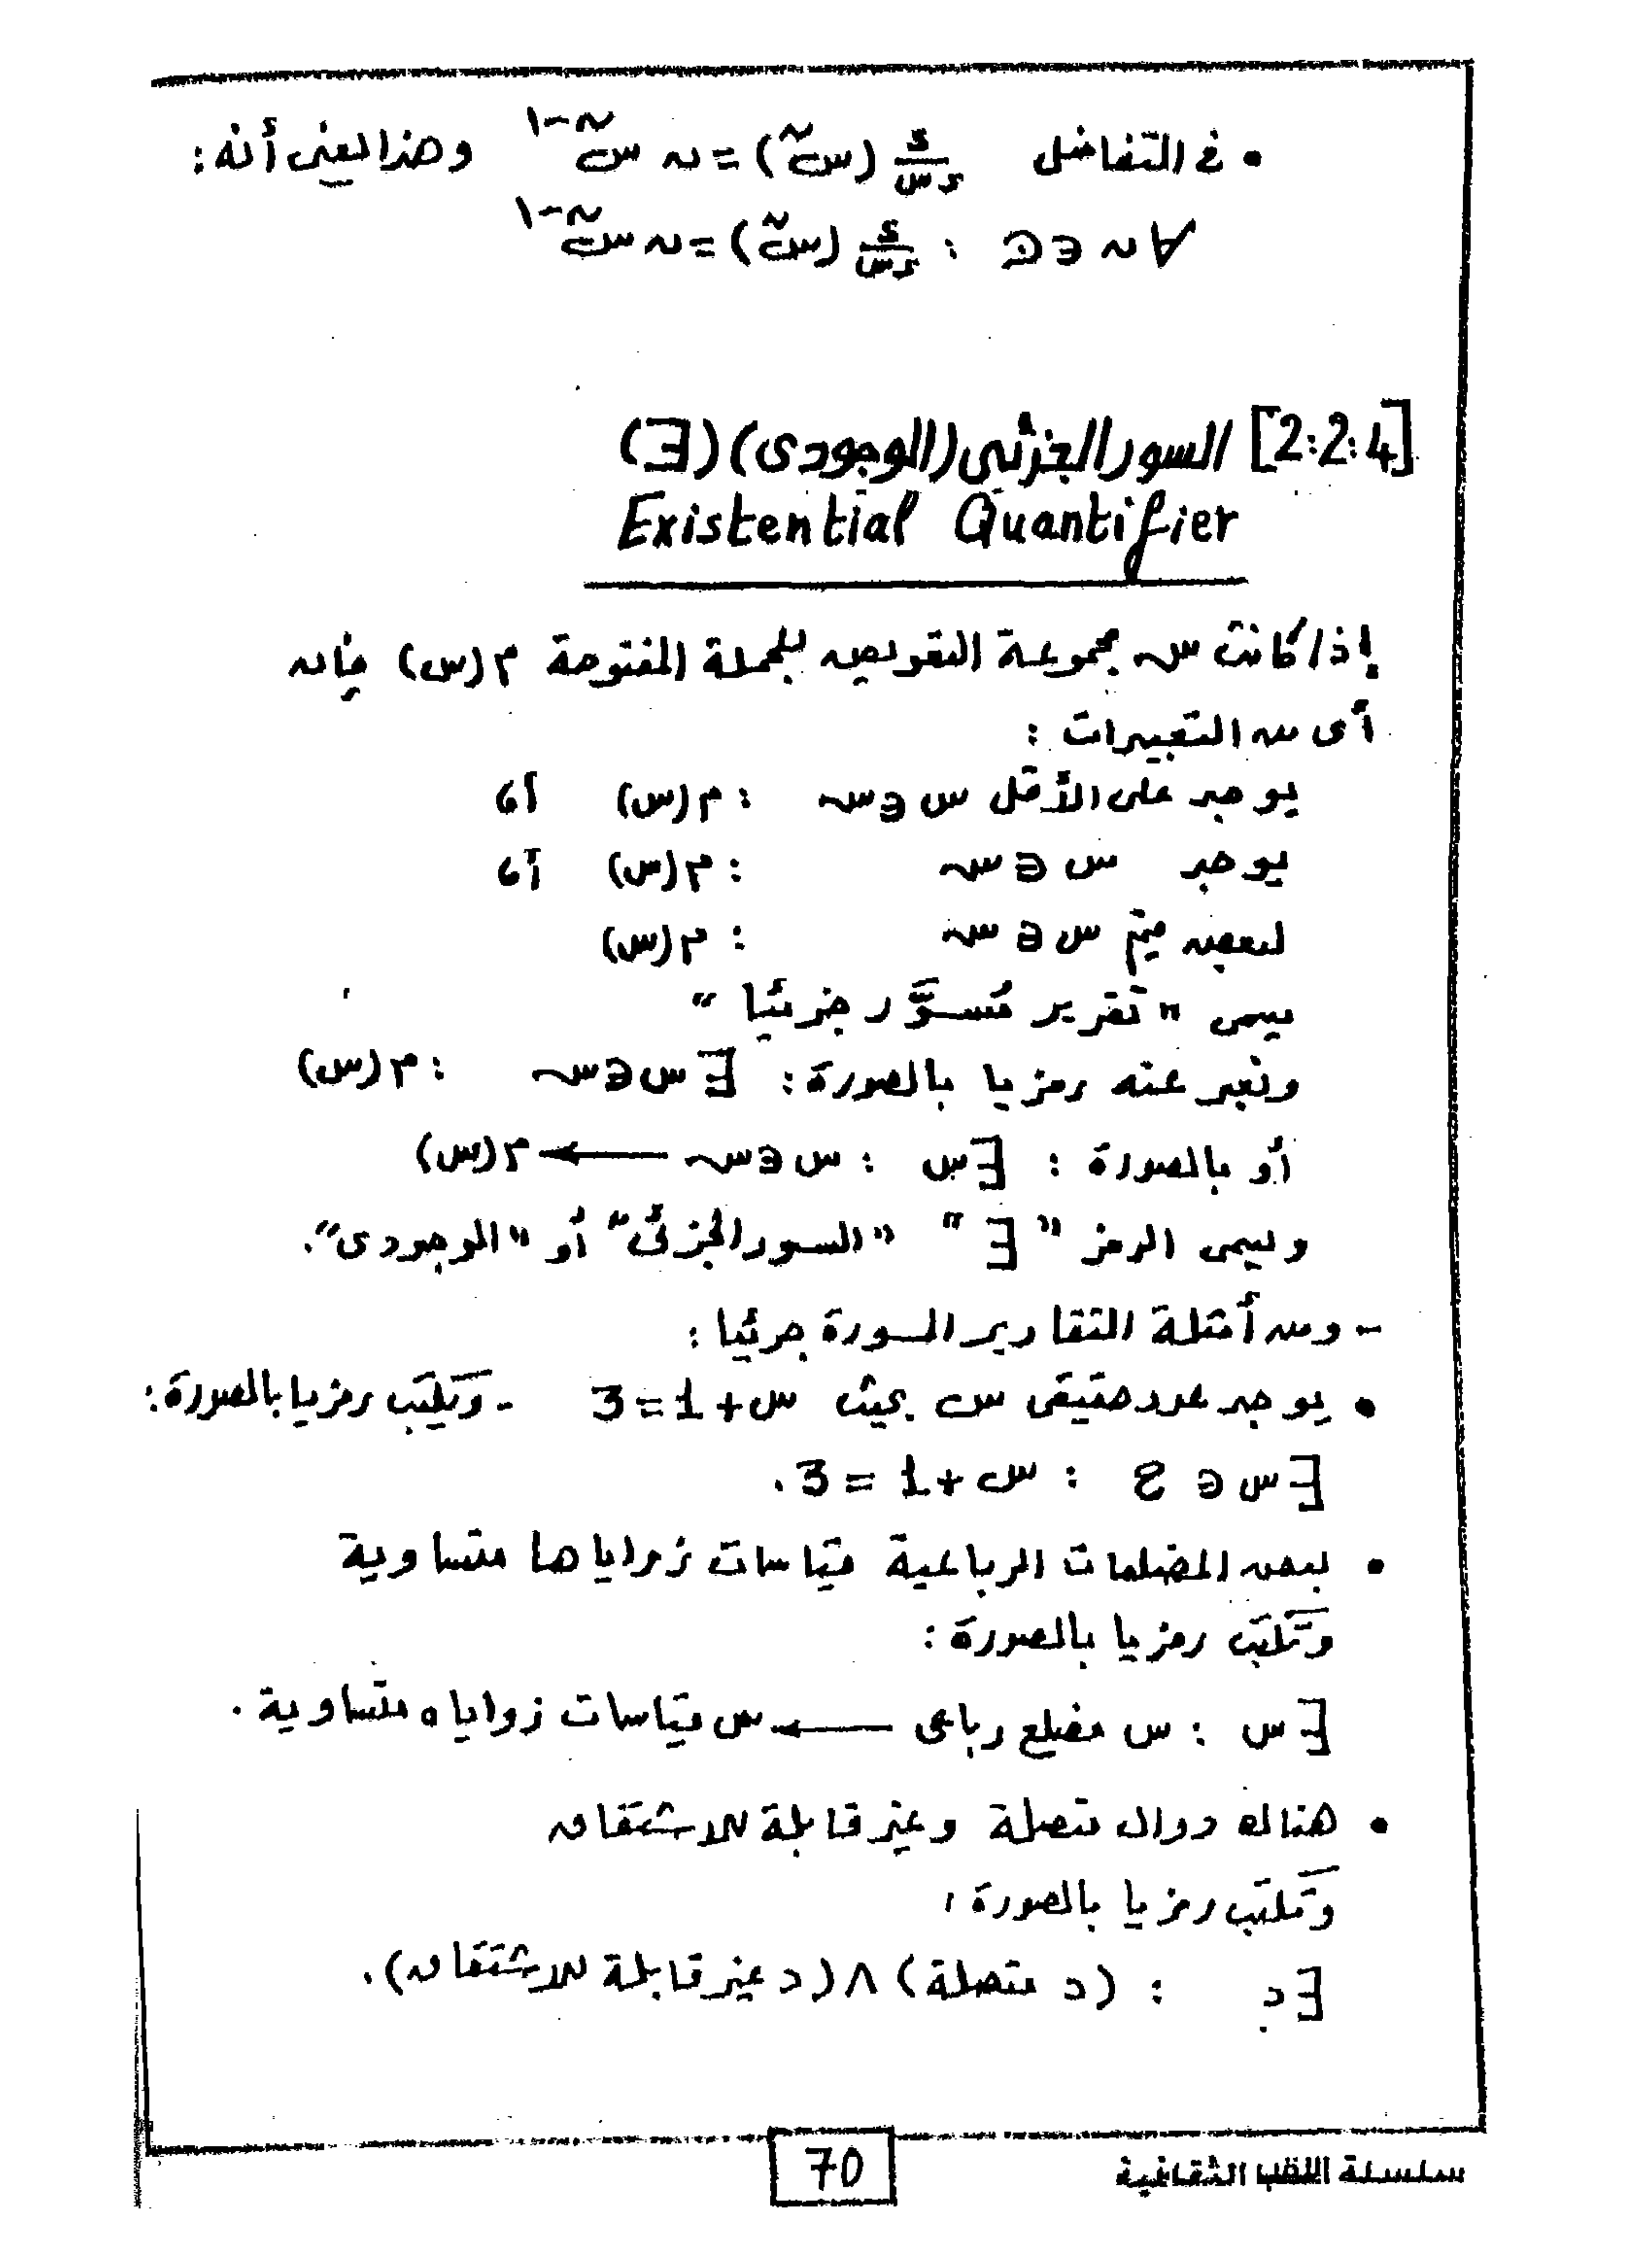 • فى التفاضل د/دس (س^ن) = ن س^ن-١ وهذا يعنى أنه:
∀ ن ∈ ن : د/دس (س^ن) = ن س^ن-١
[2:2:4] السور الجزئى (الوجودى) (∃)
Existential Quantifier
إذا كانت سـ مجموعة التعويض للجملة المفتوحة م(س) فإن
أى من التعبيرات :
يوجد على الأقل س ∈ سـ : م(س) أو
يوجد س ∈ سـ : م(س) أو
لبعض قيم س ∈ سـ : م(س)
يسمى "تقرير مُسوَّر جزئيا"
ونعبر عنه رمزيا بالصورة: ∃ س ∈ سـ : م(س)
أو بالصورة : ∃س : س ∈ سـ ← م(س)
ويسمى الرمز "∃" "السور الجزئى" أو "الوجودى".
- ومن أمثلة التقارير المسورة جزئيا :
• يوجد عدد حقيقى س بحيث س+1=3 - وتكتب رمزيا بالصورة:
∃ س ∈ ح : س+1=3.
• بعض المضلعات الرباعية قياسات زواياها متساوية
وتكتب رمزيا بالصورة :
∃ س : س مضلع رباعى ← س قياسات زواياه متساوية .
• هناك دوال متصلة وغير قابلة للاشتقاق
وتكتب رمزيا بالصورة :
∃د : (د متصلة) ∧ (د غير قابلة للاشتقاق).
70
سلسلة القطب الثقافية